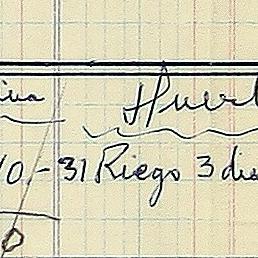 iva Huert
0.- 31 Riego 3 dia